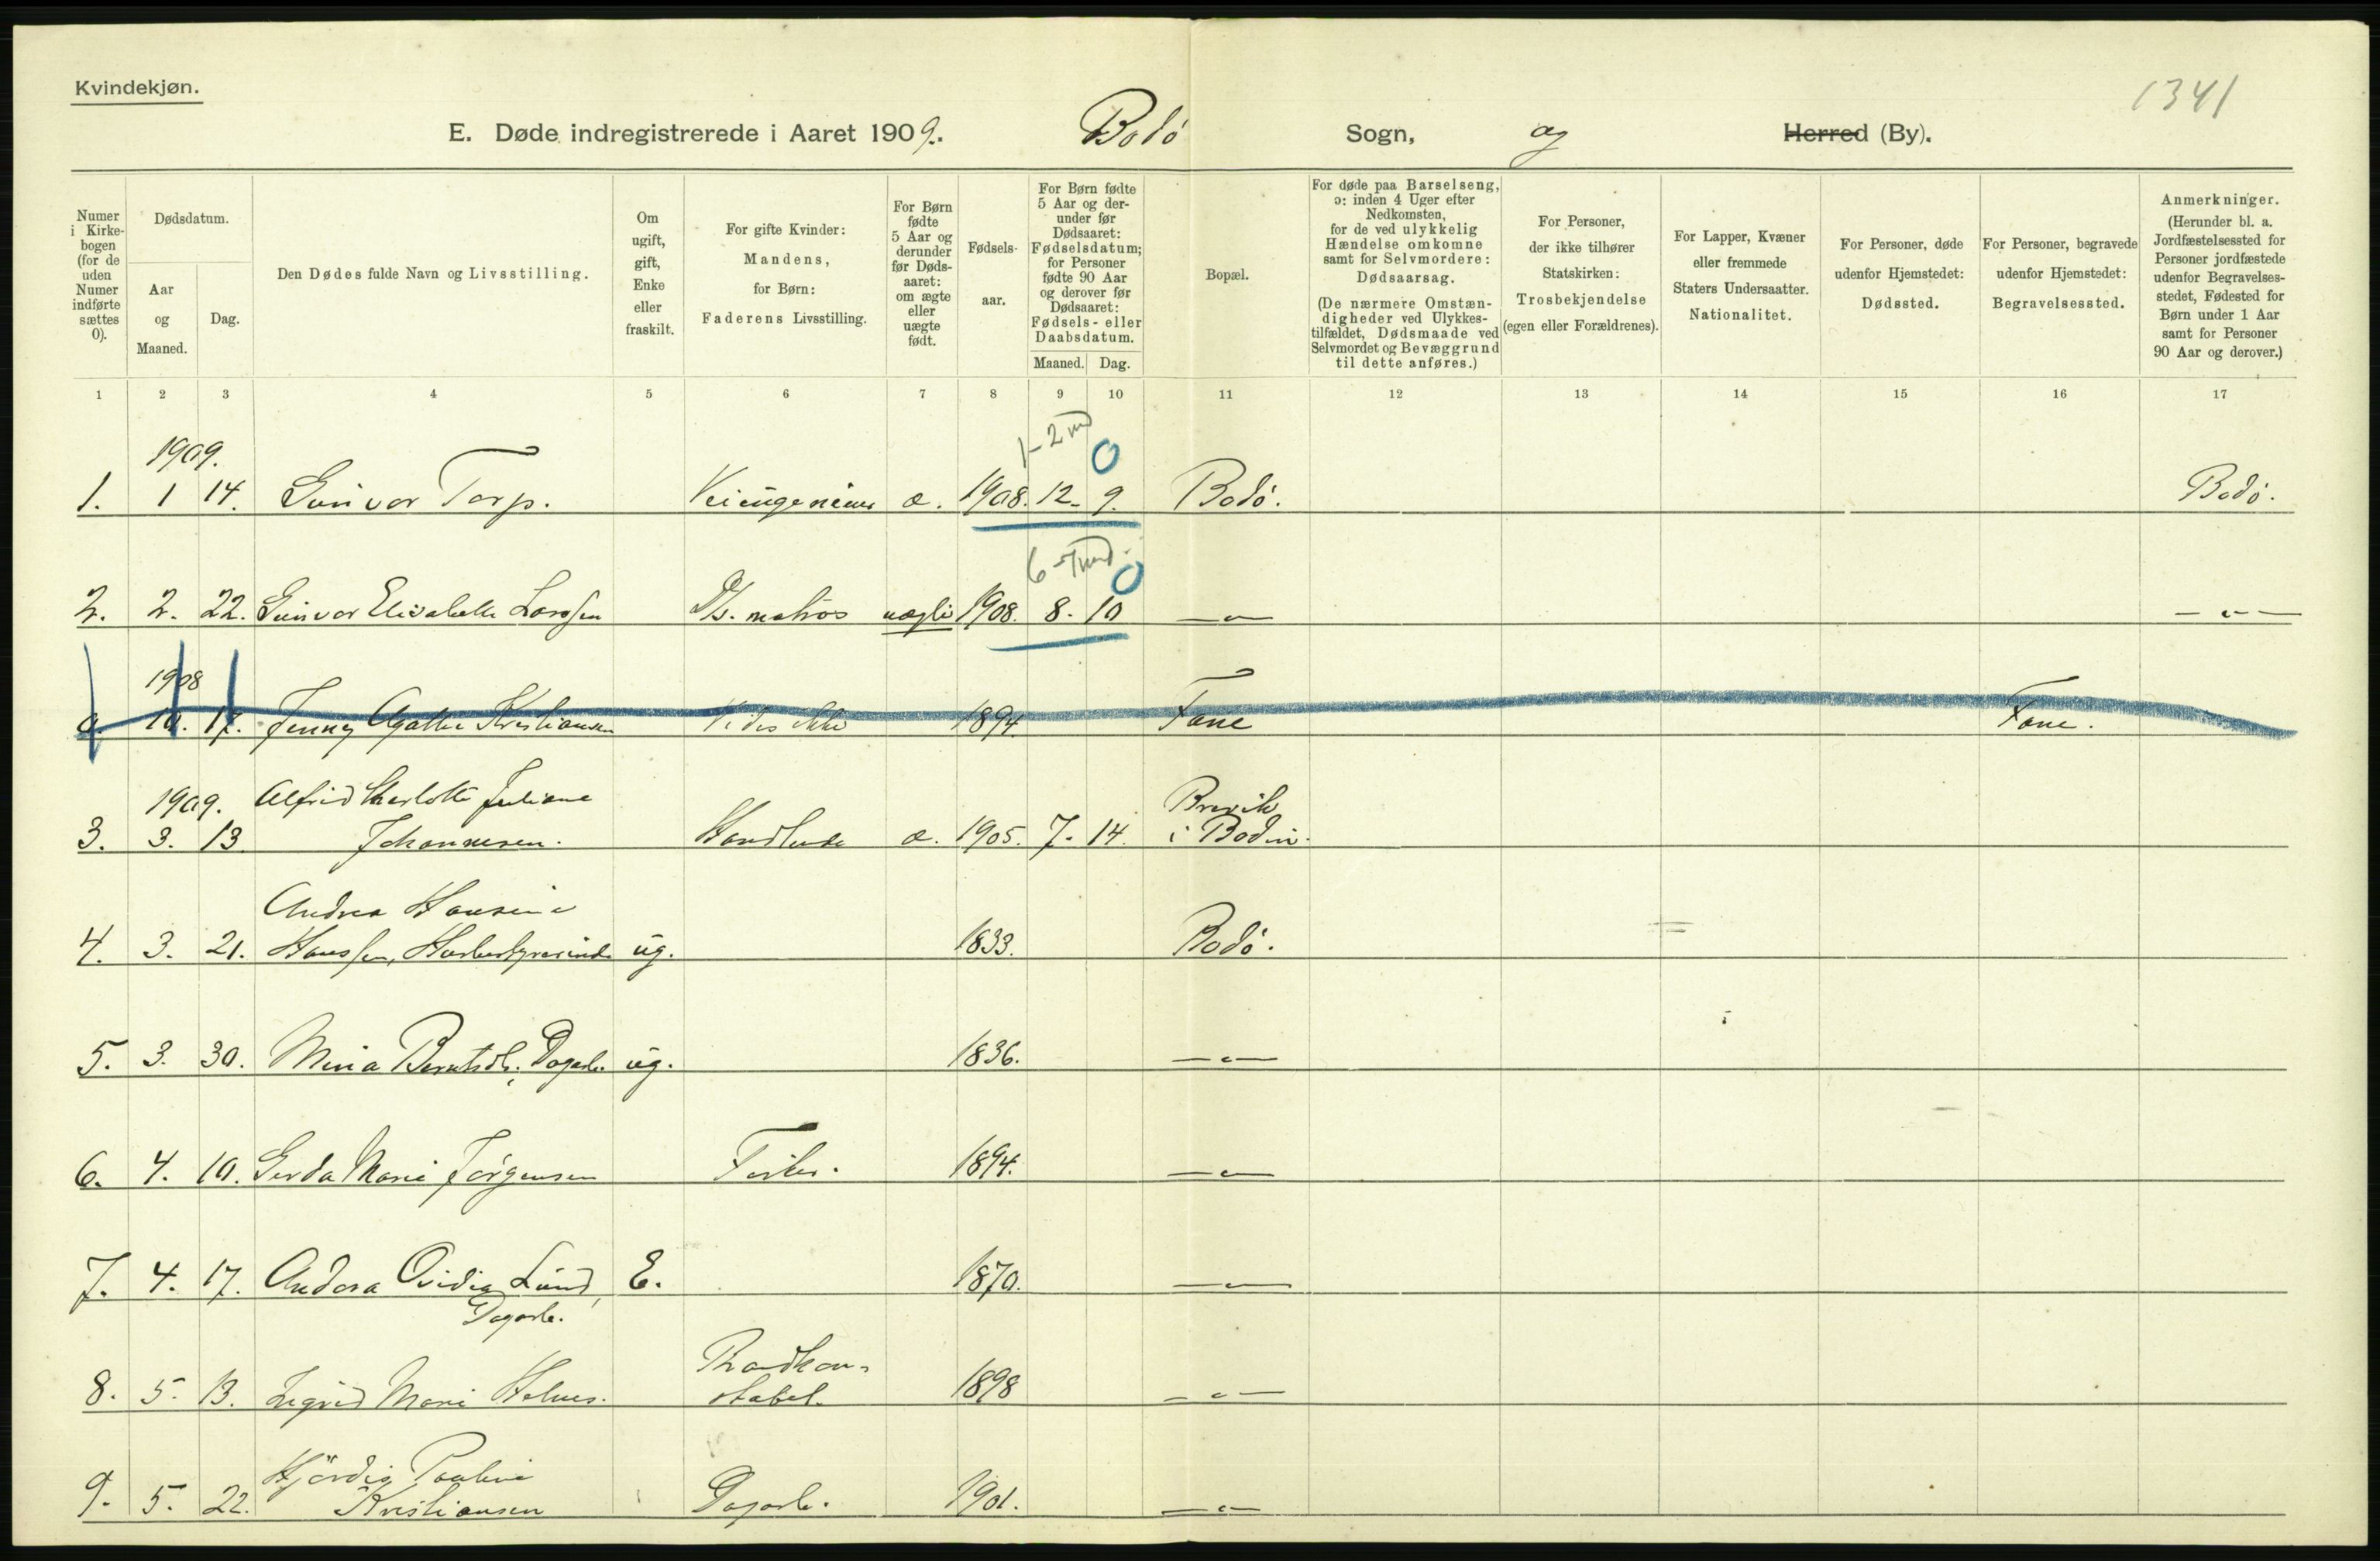 Kvindekjøn.
1341
E. Døde indregistrerede i Aaret 1909. Bodö Sogn, og Herred (By).
Numer i Kirkebogen (for de uden Numer indførte sættes 0).
Dødsdatum.
Aar og Maaned.
Dag.
Den Dødes fulde Navn og Livsstilling.
Om ugift, gift, Enke eller fraskilt.
For gifte Kvinder: Mandens, for Børn: Faderens Livsstilling.
For Børn fødte 5 Aar og derunder før Dødsaaret: om ægte eller uægte født.
Fødselsaar.
For Børn fødte 5 Aar og derunder før Dødsaaret: Fødselsdatum; for Personer fødte 90 Aar og derover før Dødsaaret: Fødsels- eller Daabsdatum.
Maaned. Dag.
Bopæl.
For døde paa Barselseng, ɔ: inden 4 Uger efter Nedkomsten, for de ved ulykkelig Hændelse omkomne samt for Selvmordere: Dødsaarsag.
(De nærmere Omstændigheder ved Ulykkestilfældet, Dødsmaade ved Selvmordet og Bevæggrund til dette anføres.)
For Personer, der ikke tilhører Statskirken: Trosbekjendelse (egen eller Forældrenes).
For Lapper, Kvæner eller fremmede Staters Undersaatter. Nationalitet.
For Personer, døde udenfor Hjemstedet: Dødssted.
For Personer, begravede udenfor Hjemstedet: Begravelsessted.
Anmerkninger.
(Herunder bl. a. Jordfæstelsessted for Personer jordfæstede udenfor Begravelsesstedet, Fødested for Børn under 1 Aar samt for Personer 90 Aar og derover.)
1 2 3 4 5 6 7 8 9 10 11 12 13 14 15 16 17
1909. 1-2 md 0
1. 1 14. Gunvor Torp. Veiingeniør æ. 1908. 12. 9. Bodö. Bodö.
6-7 md. 0
2. 2. 22. Gunvor Elisabeth Larssen D/s. matros uægte 1908. 8. 10 —"— —"—
1908
0. 10. 17. Jenny Agathe Kristiansen Vides ikke 1894. Fane Fane.
1909. Alfrid Charlotte Juliane Brevik
3. 3. 13 Johannesen. Handlende æ. 1905. 7. 14. i Bodin.
Andrea Hansine
4. 3. 21. Hanssen, ug. 1833. Bodö.
5. 3. 30. Mina Berntsdt. Dagarb. ug. 1836. —"—
6. 4. 10. Gerda Marie Jörgensen Fisker. 1894. —"—
7. 4. 17. Andora Ovidia Lund, E. 1870. —"—
Dagarb.
8. 5. 13. Sigrid Marie Holmes. 1898 —"—
Hjördis Pauline
9. 5. 22. Kristiansen Dagarb. 1901. —"—